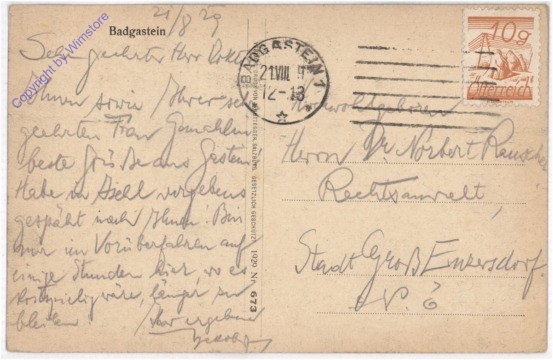 Badgastein 21/8 29
Sehr geehrter Herr Doktor
Ihnen sowie Ihrer sehr
geehrten Frau Gemahlin
beste Grüße aus Gastein
Habe in Ischl vergebens
gespäht nach Ihnen. Bin
nur im Vorüberfahren auf
einige Stunden hier, wo es
kostspielig wäre, länger zu
bleiben. Ihr ergebener
1920 Nr. 673
BADGASTEIN 1
21.VIII
12-13
10g
Österreich
Hochwohlgeboren
Herrn Dr. Norbert
Rechtsanwalt,
Stadt Groß Enzersdorf
N. Ö
Copyright by Winstore